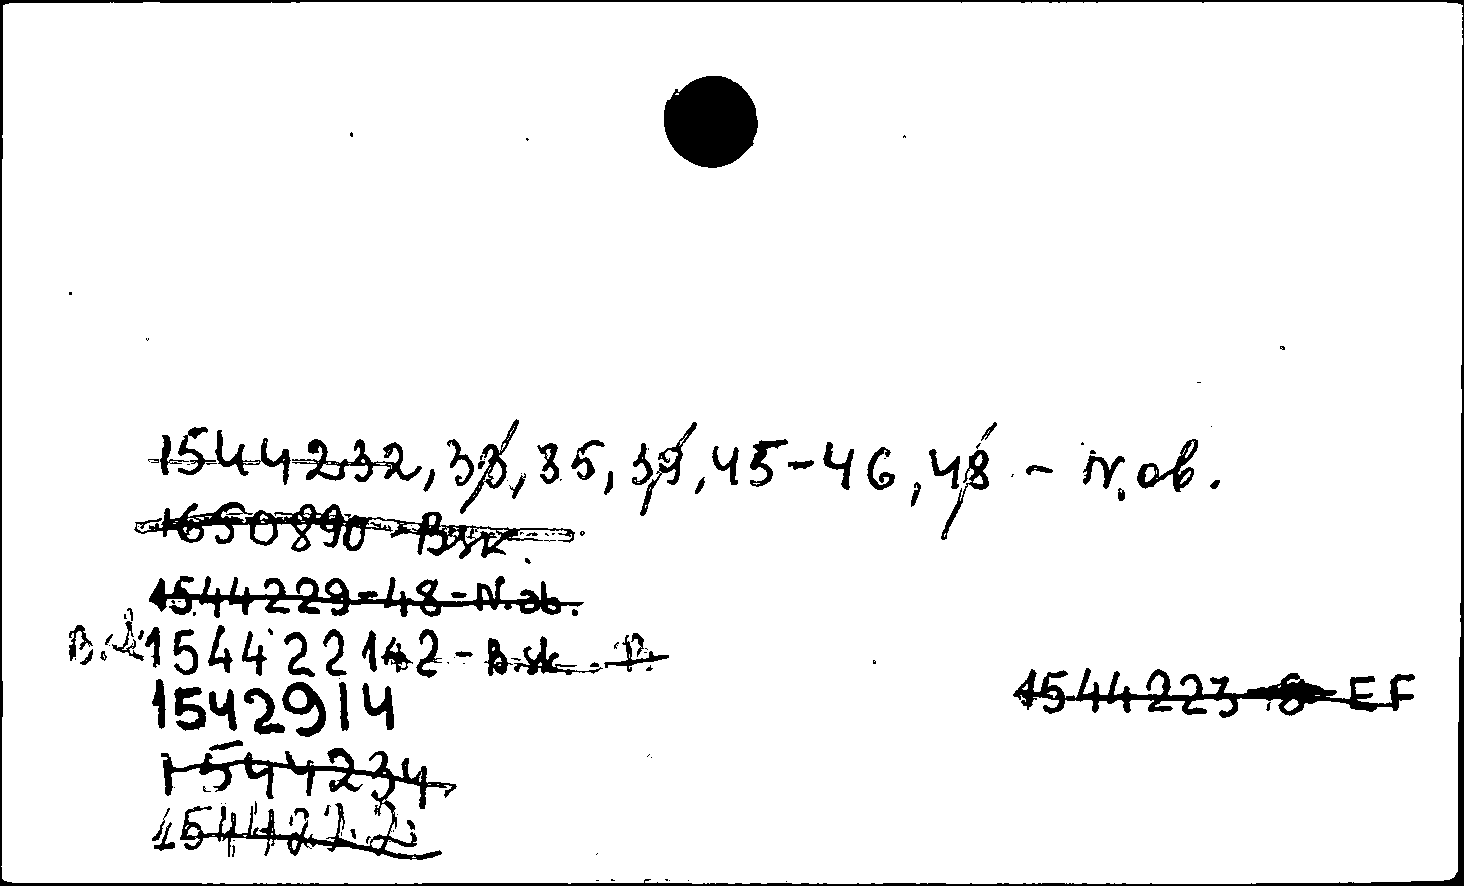 1544232, 33, 35, 39, 45-46, 48 - N.ob.
1650890-Bsk.
1544229-48-N.ob.
154422142-B.sk. B.
1542914
1544223-8-EF
1544234
1544222